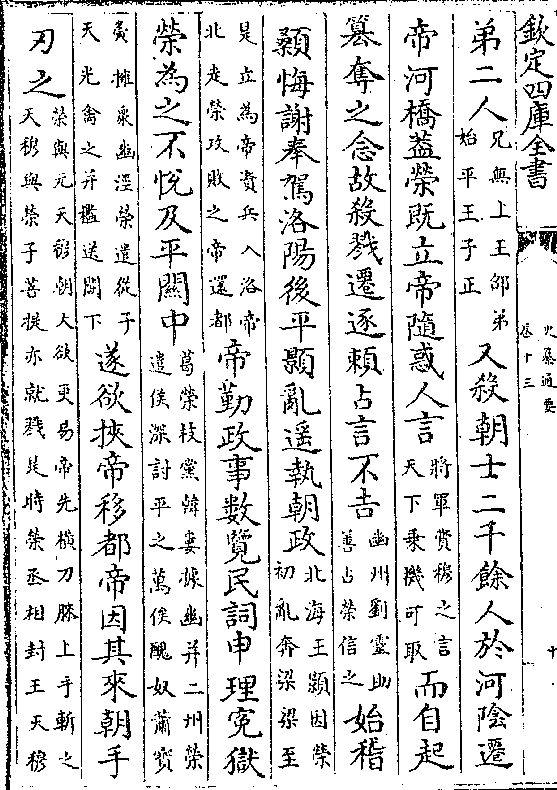 欽定四庫全書
史纂通要
卷十三
十
弟二人兄無上王邵弟始平王子正又殺朝士二千餘人於河陰遷
帝河橋葢榮既立帝隨惑人言將軍費穆之言天下乗機可取而自起
簒奪之念故殺戮遷逐頼占言不吉幽州劉靈助善占榮信之始稽
顙悔謝奉駕洛陽後平顥亂遥執朝政北海王顥因榮初亂奔梁梁至
是立為帝資兵入洛帝北走榮攻敗之帝還都帝勤政事数覽民詞申理寃獄
榮為之不悅及平關中葛榮枝黨韓婁據幽并二州榮遣侯深討平之萬俟醜奴蕭寳
夤擁衆幽涇榮遣從子天光禽之并檻送闕下遂欲挾帝移都帝因其來朝手
刃之榮與元天穆朝入欲更易帝先横刀膝上手斬之天穆與榮子菩提亦就戮是時榮丞相封王天穆